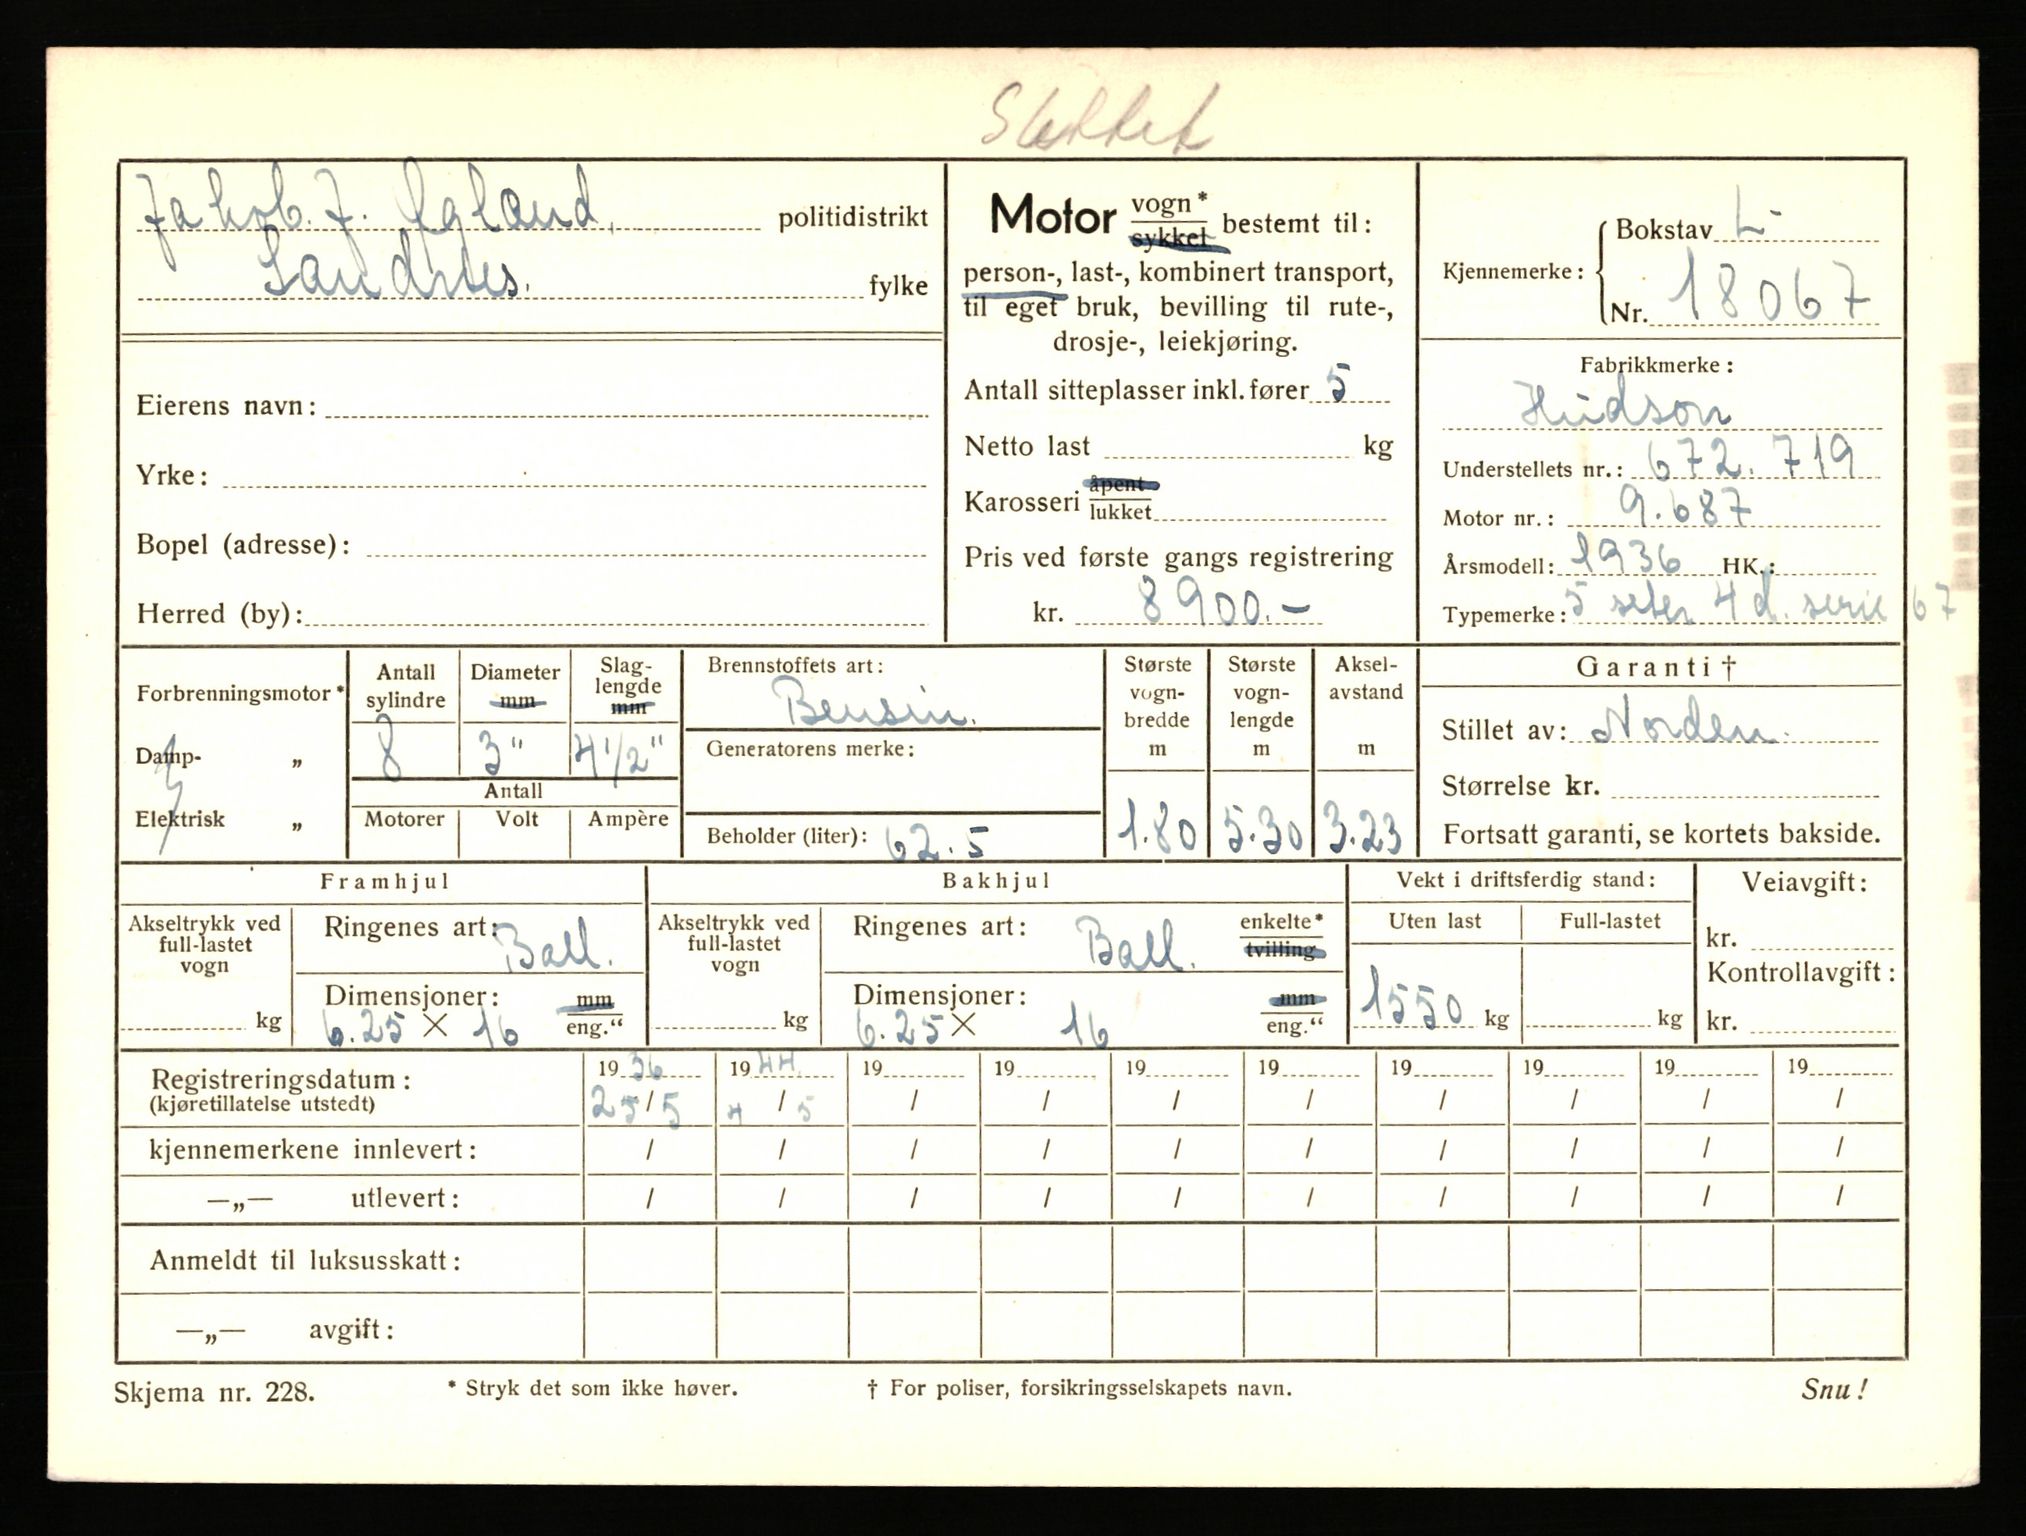 Slettet
Jakob. J. Egland, politidistrikt
Sandnes. fylke
Eierens navn:
Yrke:
Bopel (adresse):
Herred (by):
Motor vogn* sykkel bestemt til:
person-, last-, kombinert transport,
til eget bruk, bevilling til rute-,
drosje-, leiekjøring.
Antall sitteplasser inkl. fører 5
Netto last kg
Karosseri åpent lukket
Pris ved første gangs registrering
kr. 8900.-
Kjennemerke: Bokstav L-
Nr. 18067
Fabrikkmerke:
Hudson
Understellets nr.: 672.719
Motor nr.: 9.687
Årsmodell: 1936 HK.:
Typemerke: 5 seter 4 d. serie 67
Forbrenningsmotor*
Damp- „
Elektrisk „
Antall sylindre
8
Diameter mm
3"
Slag-lengde mm
4 1/2"
Antall
Motorer Volt Ampère
Brennstoffets art:
Bensin.
Generatorens merke:
Beholder (liter): 62.5
Største vogn-bredde m
1.80
Største vogn-lengde m
5.30
Aksel-avstand m
3.23
Garanti †
Stillet av: Norden.
Størrelse kr.
Fortsatt garanti, se kortets bakside.
Framhjul
Akseltrykk ved full-lastet vogn
kg
Ringenes art: Ball.
Dimensjoner: mm
6.25 × 16 eng.“
Bakhjul
Akseltrykk ved full-lastet vogn
kg
Ringenes art: Ball. enkelte* tvilling
Dimensjoner: mm
6.25 × 16 eng.“
Vekt i driftsferdig stand:
Uten last Full-lastet
1550 kg kg
Veiavgift:
kr.
Kontrollavgift:
kr.
Registreringsdatum: 1936 1944 19 19 19 19 19 19 19 19
(kjøretillatelse utstedt) 25/5 4/5 / / / / / / / /
kjennemerkene innlevert: / / / / / / / / / /
—„— utlevert: / / / / / / / / / /
Anmeldt til luksusskatt:
—„— avgift:
Skjema nr. 228. * Stryk det som ikke høver. † For poliser, forsikringsselskapets navn. Snu!